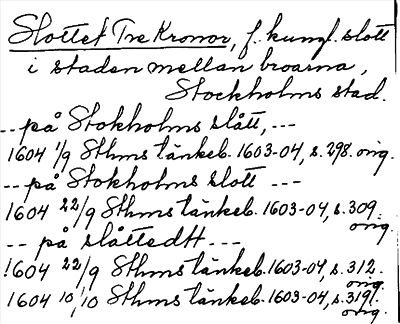 Slottet Tre Kronor, f. kungl. slott
i staden mellan broarna,
Stockholms stad.
--på Stokholms slått, ---
1604 1/9 Sthms tänkeb. 1603-04, s. 298. orig.
--på Stokholms slott ---
1604 22/9 Sthms tänkeb. 1603-04, s. 309. orig.
-- på slåttedtt ---
1604 22/9 Sthms tänkeb. 1603-04, s. 312. orig.
1604 10/10 Sthms tänkeb. 1603-04, s. 319. orig.